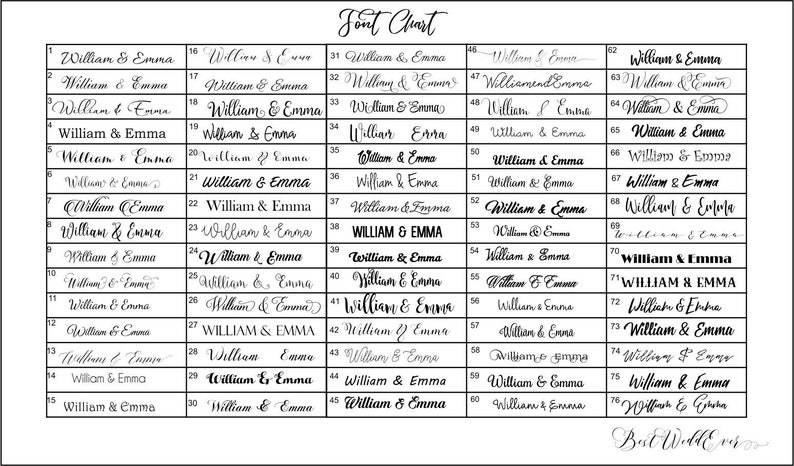 Font Chart
1 William & Emma
2 William & Emma
3 William & Emma
4 William & Emma
5 William & Emma
6 William & Emma
7 William & Emma
8 William & Emma
9 William & Emma
10 William & Emma
11 William & Emma
12 William & Emma
13 William & Emma
14 William & Emma
15 William & Emma
16 William & Emma
17 William & Emma
18 William & Emma
19 William & Emma
20 William & Emma
21 William & Emma
22 William & Emma
23 William & Emma
24 William & Emma
25 William & Emma
26 William & Emma
27 WILLIAM & EMMA
28 William Emma
29 William & Emma
30 William & Emma
31 William & Emma
32 William & Emma
33 William & Emma
34 William Emma
35 William & Emma
36 William & Emma
37 William & Emma
38 WILLIAM & EMMA
39 William & Emma
40 William & Emma
41 William & Emma
42 William & Emma
43 William & Emma
44 William & Emma
45 William & Emma
46 William & Emma
47 WilliamendEmma
48 William & Emma
49 William & Emma
50 William & Emma
51 William & Emma
52 William & Emma
53 William & Emma
54 William & Emma
55 William & Emma
56 William & Emma
57 William & Emma
58 William & Emma
59 William & Emma
60 William & Emma
62 William & Emma
63 William & Emma
64 William & Emma
65 William & Emma
66 William & Emma
67 William & Emma
68 William & Emma
69 William & Emma
70 William & Emma
71 WILLIAM & EMMA
72 William & Emma
73 William & Emma
74 William & Emma
75 William & Emma
76 William & Emma
BestWeddEver